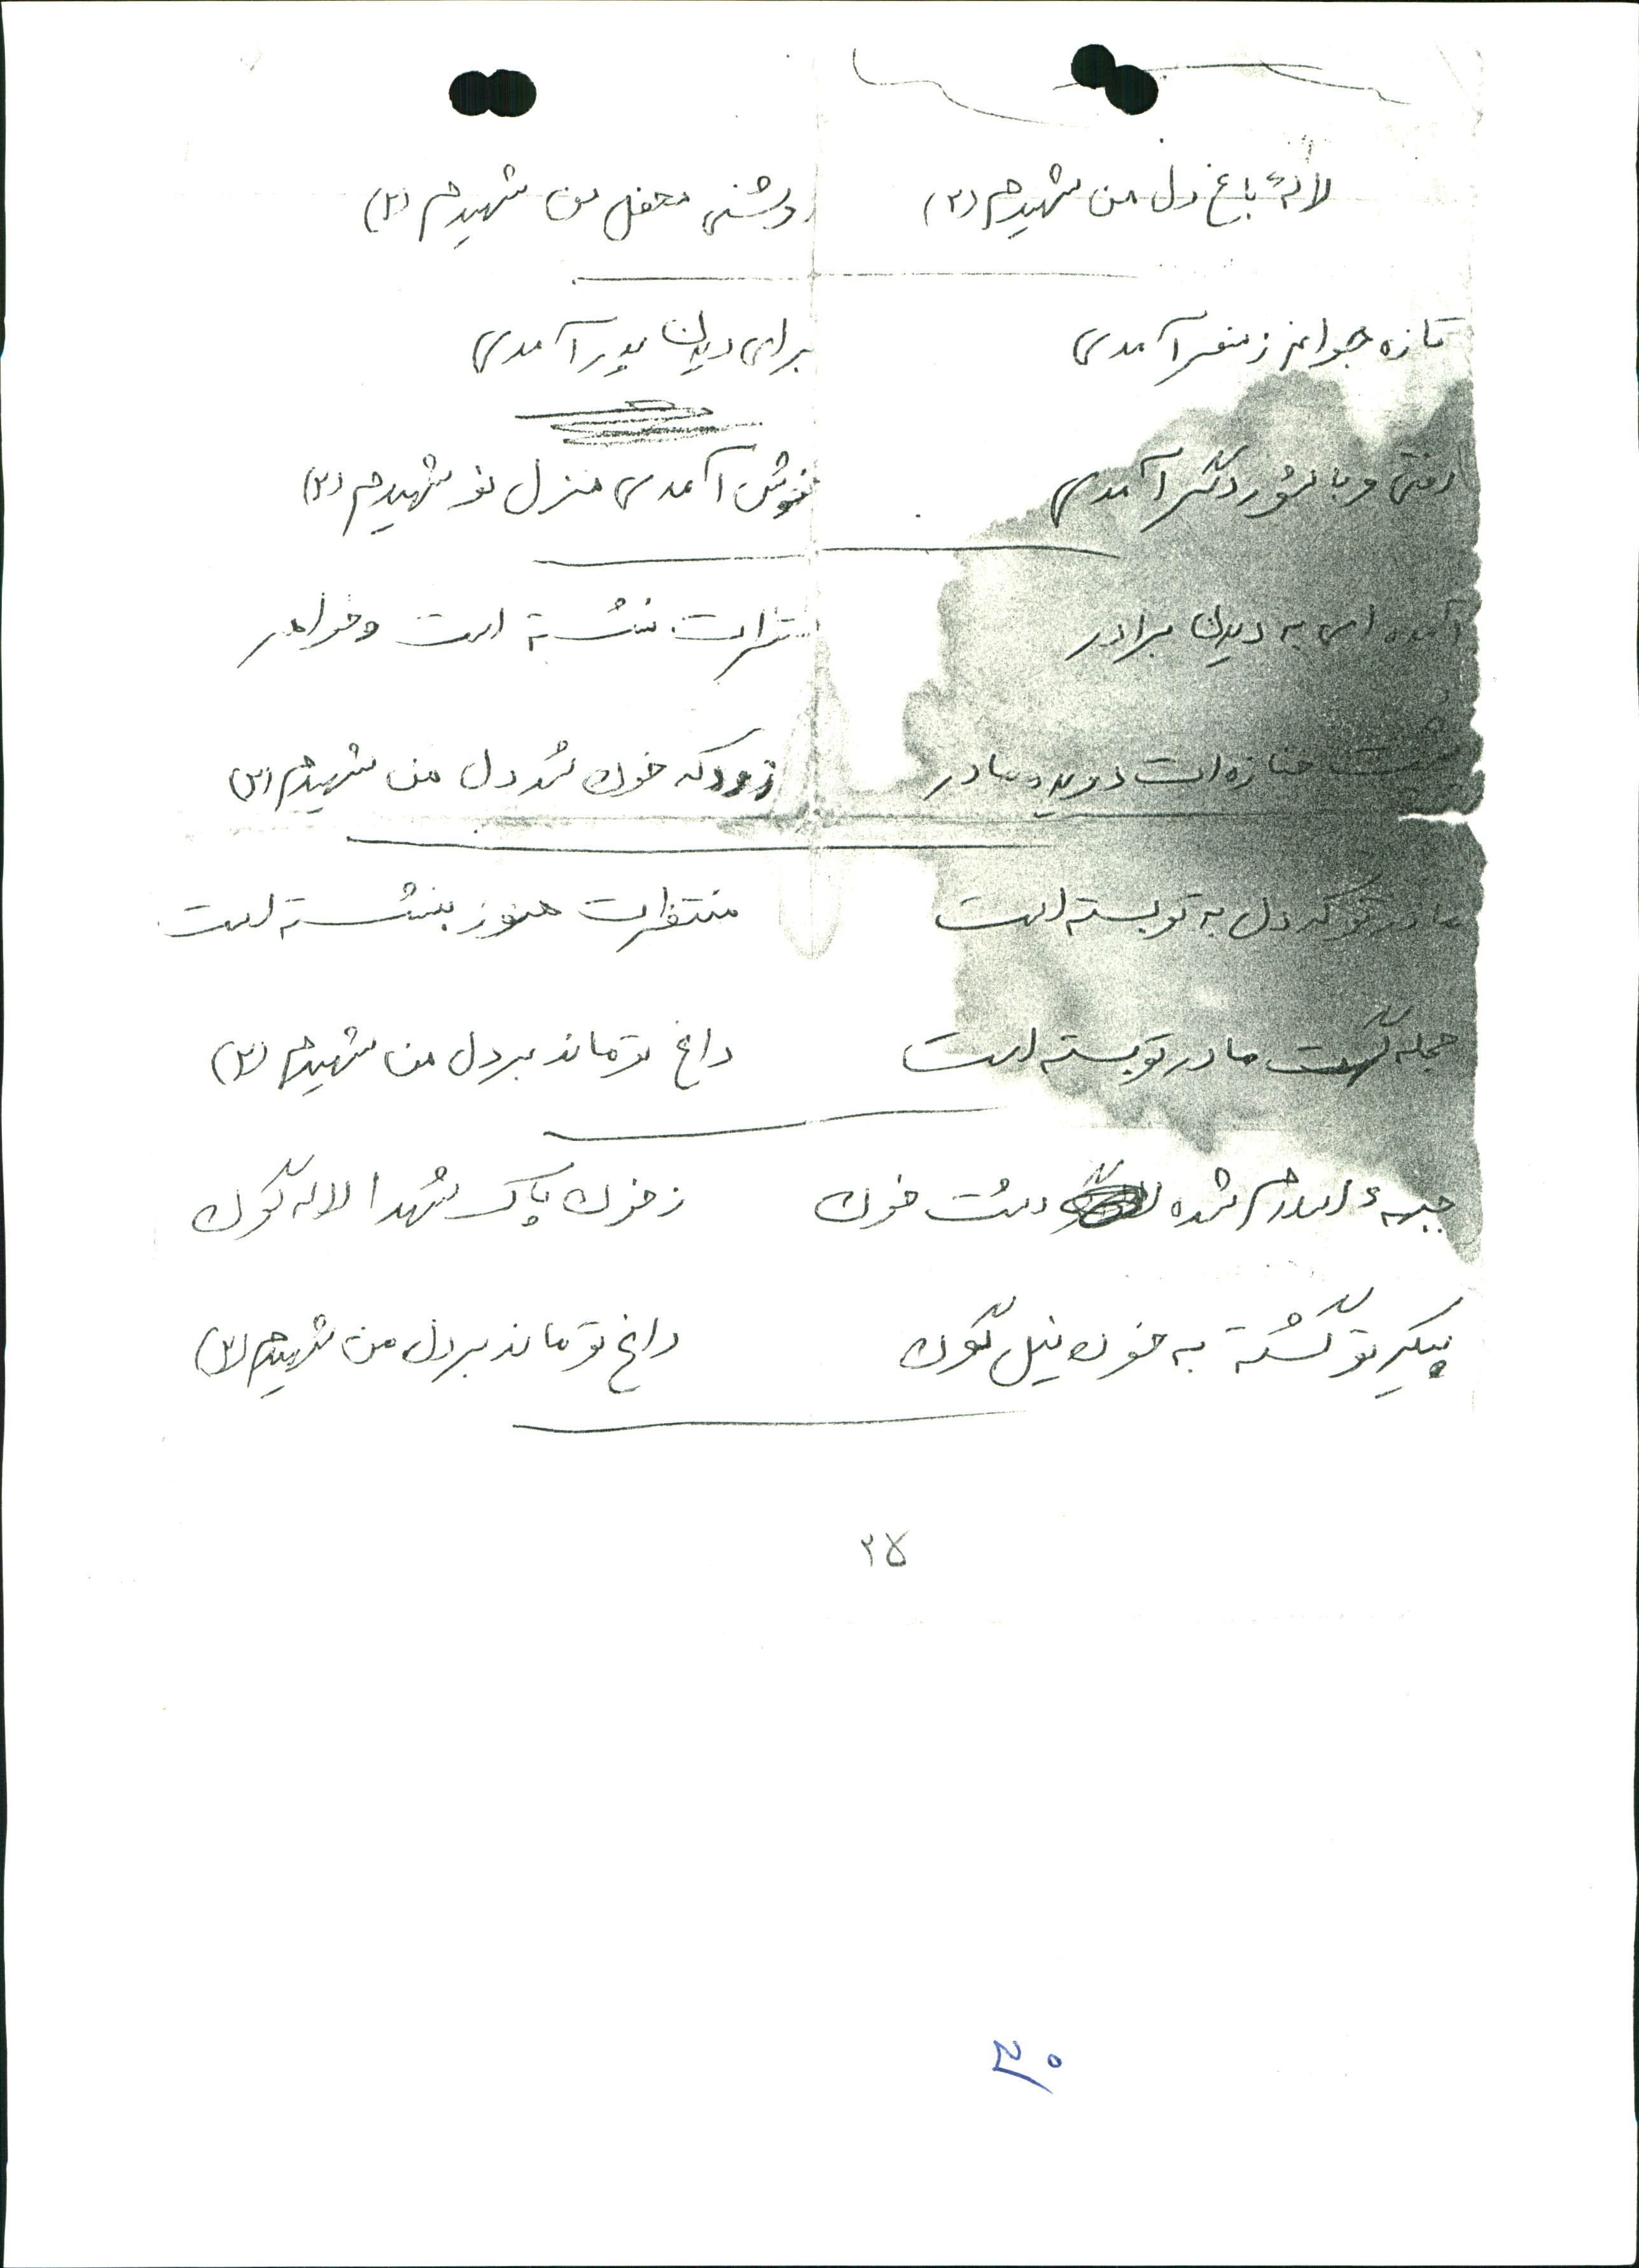 لالهٔ باغ دل من شهیدم (۲) روشنی محفل من شهیدم (۲)
تازه جوانم ز سفر آمدی برای دیدن پدر آمدی
رفتی و با شور دگر آمدی خوش آمدی منزل نو شهیدم (۲)
آمده ای به دیدن برادر نشسته است خواهر
جنازه ات دویده مادر زود که خون شد دل من شهیدم (۲)
مادر تو که دل به تو بسته است منتظرت هنوز بنشسته است
حجله گهت مادر تو بسته است داغ تو ماند بر دل من شهیدم (۲)
جبههٔ اسلام شده دشت خون ز خون پاک شهدا لاله گون
پیکرِ تو گشته به خون نیل گون داغ تو ماند بر دل من شهیدم (۲)
۲۵
۲۰